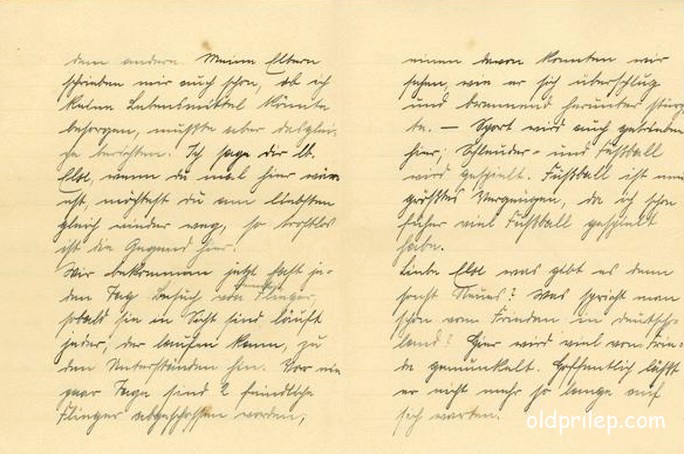 dem andern. Meine Eltern
schrieben mir auch schon, ob ich
keine Lebensmittel könnte
besorgen, mußte aber desglei-
che berichten. Ich sage dir lb.
Else, wenn du mal hier wär
est, möchtest du am liebsten
gleich wieder weg, so trostlos
ist die Gegend hier.
Wir bekommen jetzt fast je-
den Tag Besuch von Flieger,
sobald sie in Sicht sind läuft
jeder, der laufen kann, zu
den Unterständen hin. Vor ein
paar Tage sind 2 feindliche
Flieger abgeschossen worden,
einen davon konnten wir
sehen, wie er sich überschlug
und brennend herunter stürz
te. — Sport wird auch getrieben
hier; Schleuder- und Fußball
wird gespielt. Fußball ist mein
größtes Vergnügen, da ich schon
früher viel Fußball gespielt
habe.
Liebe Else was gibt es denn
sonst Neues? Was spricht man
schon vom Frieden in Deutsch-
land? Hier wird viel vom Frie-
de gemunkelt. Hoffentlich läßt
er nicht mehr so lange auf
sich warten.
oldprilep.com